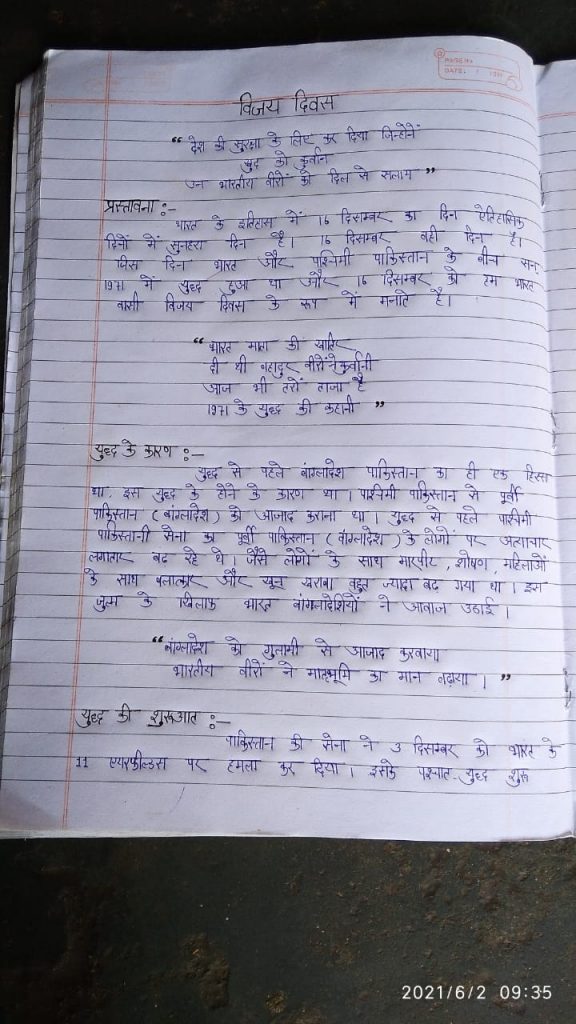 PAGE NO.
DATE: / /
विजय दिवस
“ देश की सुरक्षा के लिए कर दिया जिन्होनें
खुद को कुर्बान
उन भारतीय वीरों को दिल से सलाम ”
प्रस्तावना :-
भारत के इतिहास में 16 दिसम्बर का दिन ऐतिहासिक
दिनों में सुनहरा दिन है। 16 दिसम्बर वही दिन है।
जिस दिन भारत और पश्चिमी पाकिस्तान के बीच सन्
1971 में युद्ध हुआ था और 16 दिसम्बर को हम भारत
वासी विजय दिवस के रूप में मनाते है।
“ भारत माता की खातिर
दी थी बहादुर वीरों ने कुर्बानी
आज भी तरों ताजा है
1971 के युद्ध की कहानी ”
युद्ध के कारण :-
युद्ध से पहले बांग्लादेश पाकिस्तान का ही एक हिस्सा
था, इस युद्ध के होने के कारण था। पाश्चिमी पाकिस्तान से पूर्वी
पाकिस्तान (बांग्लादेश) को आजाद कराना था। युद्ध से पहले पाश्चिमी
पाकिस्तानी सेना का पूर्वी पाकिस्तान (बांग्लादेश) के लोगों पर अत्याचार
लगातार बढ रहे थे। जैसे लोगों के साथ मारपीट, शोषण, महिलाओं
के साथ बलात्कार और खून खराबा बहुत ज्यादा बढ गया था। इस
जुल्म के खिलाफ भारत बांग्लादेशियों ने आवाज उठाई।
“ बांग्लादेश को गुलामी से आजाद करवाया
भारतीय वीरों ने मातृभूमि का मान बढ़ाया। ”
युद्ध की शुरूआत :-
पाकिस्तान की सेना ने 3 दिसम्बर को भारत के
11 एयरफील्डस पर हमला कर दिया। इसके पश्चात युद्ध शुरू
2021/6/2 09:35